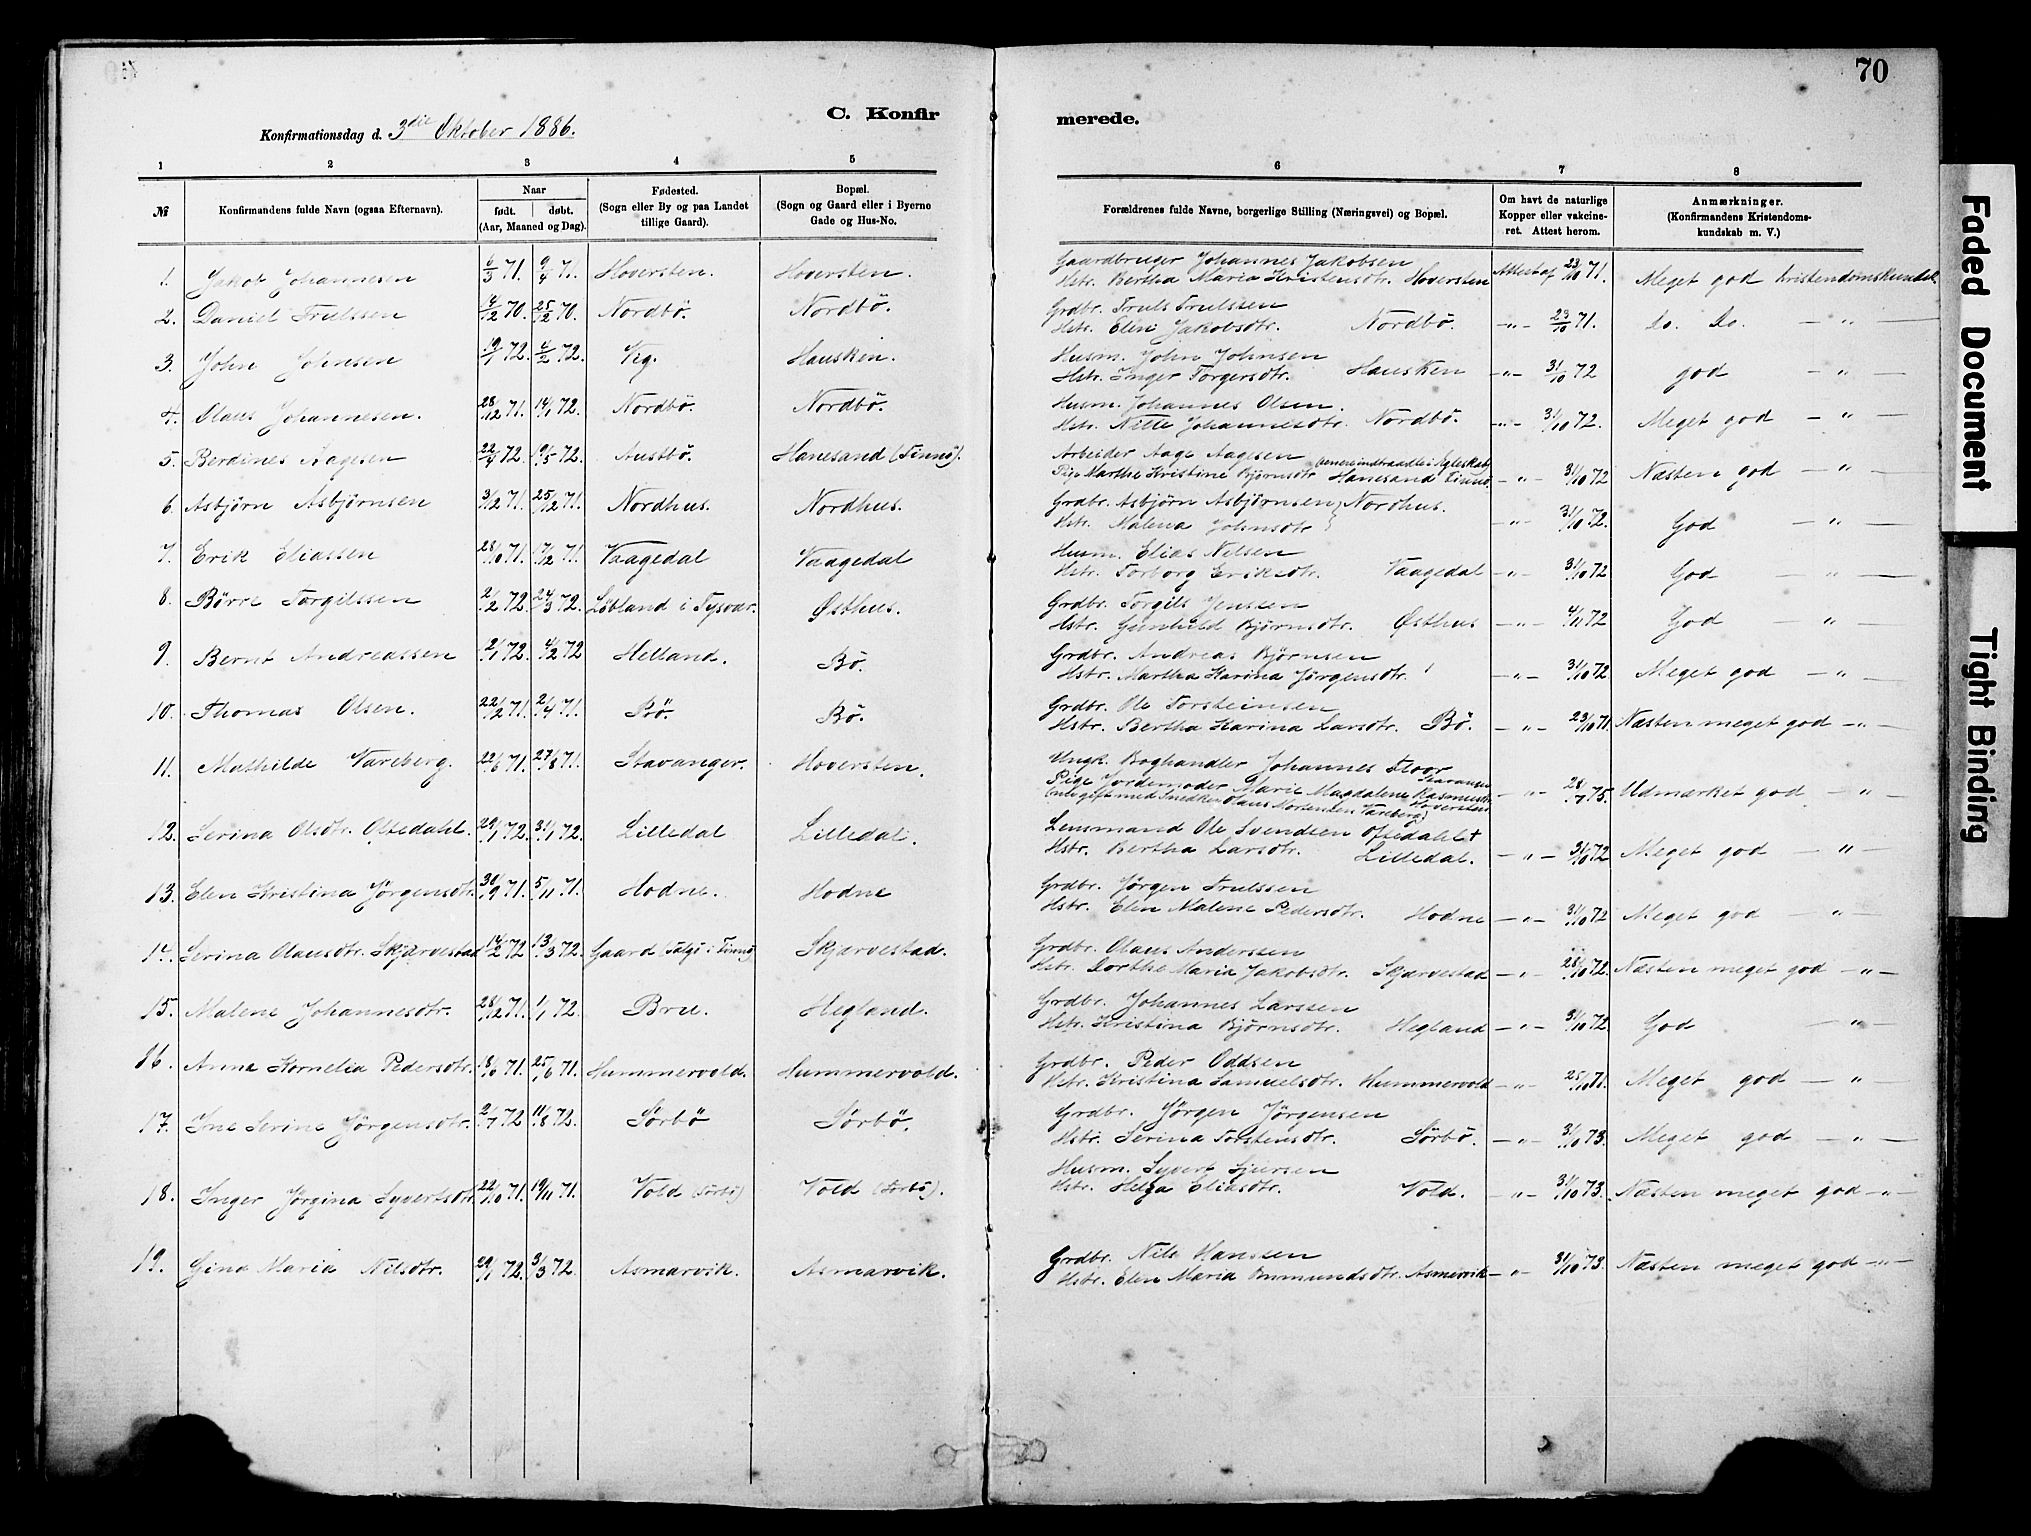 70
C. Konfirmerede.
Konfirmationsdag d. 3die Oktober 1886.
1 2 3 4 5 6 7 8
№ Konfirmandens fulde Navn (ogsaa Efternavn). Naar født. døbt. (Aar, Maaned og Dag). Fødested. (Sogn eller By og paa Landet tillige Gaard). Bopæl. (Sogn og Gaard eller i Byerne Gade og Hus-No. Forældrenes fulde Navne, borgerlige Stilling (Næringsvei) og Bopæl. Om havt de naturlige Kopper eller vakcineret. Attest herom. Anmærkninger. (Konfirmandens Kristendomskundskab m. V.)
1. Jakob Johannesen 6/3 71. 9/4 71. Hoversten. Hoversten. Gaardbruger Johannes Jakobsen
Hstr. Bertha Maria Kristensdtr. Hoversten Attest af 23/10 71. Meget god kristendomskundsk.
2. Daniel Trulssen 4/12 70. 25/12 70. Nordbö. Nordbö. Grdbr. Truls Trulssen
Hstr. Elen Jakobsdtr. Nordbö. —"— 23/10 71. Do. Do. — " —
3. John Johnsen 19/1 72. 4/2 72. Vig. Hausken. Husm. John Johnsen
Hstr. Inger Torgersdtr. Hausken —"— 31/10 72 god — " —
4. Olaus Johannesen. 28/12 71. 14/1 72. Nordbö. Nordbö. Husm. Johannes Olsen.
Hstr. Nille Johannesdtr. Nordbö. —"— 31/10 72. Meget god — " —
5. Berdines Aagesen 22/4 72. 19/5 72. Austbö. Hanesand (Finnö). Arbeider Aage Aagesen
Pige Marthe Kristine Bjørnsdtr (senere indtraadte i Egteskab) Hanesand Finnö. —"— 31/10 72 Næsten god — " —
6. Asbjörn Asbjörnsen 3/12 71. 25/12 71. Nordhus. Nordhus. Grdbr. Asbjörn Asbjörnsen } Nordhus.
Hstr. Malena Johnsdtr —"— 31/10 72. God — " —
7. Erik Eliassen 28/10 71. 17/12 71. Vaagedal Vaagedal Husm. Elias Nilsen
Hstr. Torborg Eriksdtr. Vaagedal —"— 31/10 72 God — " —
8. Börre Torgilssen 2/2 72. 24/3 72. Löbland i Tysvær. Østhus. Grdbr. Torgils Jenssen
Hstr. Gunhild Bjørnsdtr. Østhus —"— 4/11 72 God — " —
9. Bernt Andreassen 2/1 72. 4/2 72 Helland. Bö. Grdbr. Andreas Bjørnsen
Hstr. Martha Karina Jörgensdtr. —"— 31/10 72. Meget god — " —
10. Thomas Olsen. 22/2 71. 2/4 71. Bö. Bö. Grdbr. Ole Torsteinsen
Hstr. Bertha Karina Larsdtr. Bö. —"— 23/10 71. Næsten meget god —"—
11. Mathilde Vareberg. 22/6 71. 27/8 71. Stavanger. Hoversten. Ungk. Boghandler Johannes Floor Stavanger
Pige Jordemoder Marie Magdalene Rasmusdtr.
(nu gift med Snedker Olaus Mortensen Vareberg) Hoversten —"— 28/7 75. Udmærket god — " —
12. Serina Olsdtr. Oftedahl. 29/1 72. 31/1 72. Lilledal Lilledal. Lensmand Ole Svendsen Oftedahl †
Hstr. Bertha Larsdtr. Lilledal. —"— 31/10 72 Meget god — " —
13. Elen Kristina Jörgensdtr. 30/9 71. 5/11 71. Hodne. Hodne Grdbr. Jörgen Trulssen
Hstr. Elen Malene Pedersdtr. Hodne —"— 31/10 72 Meget god — "
14. Serina Olausdtr. Skjærvestad 14/2 72 13/3 72. Gaard (Talgö i Finnö) Skjærvestad. Grdbr. Olaus Anderssen
Hstr. Dorthe Maria Jakobsdtr. Skjærvestad —"— 28/10 72. Næsten meget god —"—
15. Malene Johannesdtr. 28/12 71. 1/1 72. Bru. Hegland. Grdbr. Johannes Larssen
Hstr. Kristina Bjørnsdtr. Hegland —"— 31/10 72. God — " —
16. Anna Kornelia Pedersdtr. 18/6 71. 25/6 71. Hummervold. Hummervold. Grdbr. Peder Oddsen
Hstr. Kristina Samuelsdtr. Hummervold —"— 25/10 71. Meget god — "
17. Ine Serine Jörgensdtr. 2/7 72 11/8 72. Sörbö Sörbö. Grdbr. Jörgen Jörgensen
Hstr. Serina Torstensdtr. Sörbö. —"— 31/10 73. Meget god — " —
18. Inger Jörgina Syvertsdtr. 22/10 71. 19/11 71. Vold (Sörbö) Vold (Sörbö). Husm. Syvert Sjursen
Hstr. Helga Eliasdtr. Vold. —"— 31/10 73. Næsten meget god —"—
19. Gina Maria Nilsdtr. 29/1 72. 3/3 72. Asmarvik. Asmarvik. Grdbr. Nils Hanssen
Hstr. Elen Maria Ommundsdtr. Asmervik —"— 31/10 73. Næsten meget god —"—
Faded Document
Tight Binding